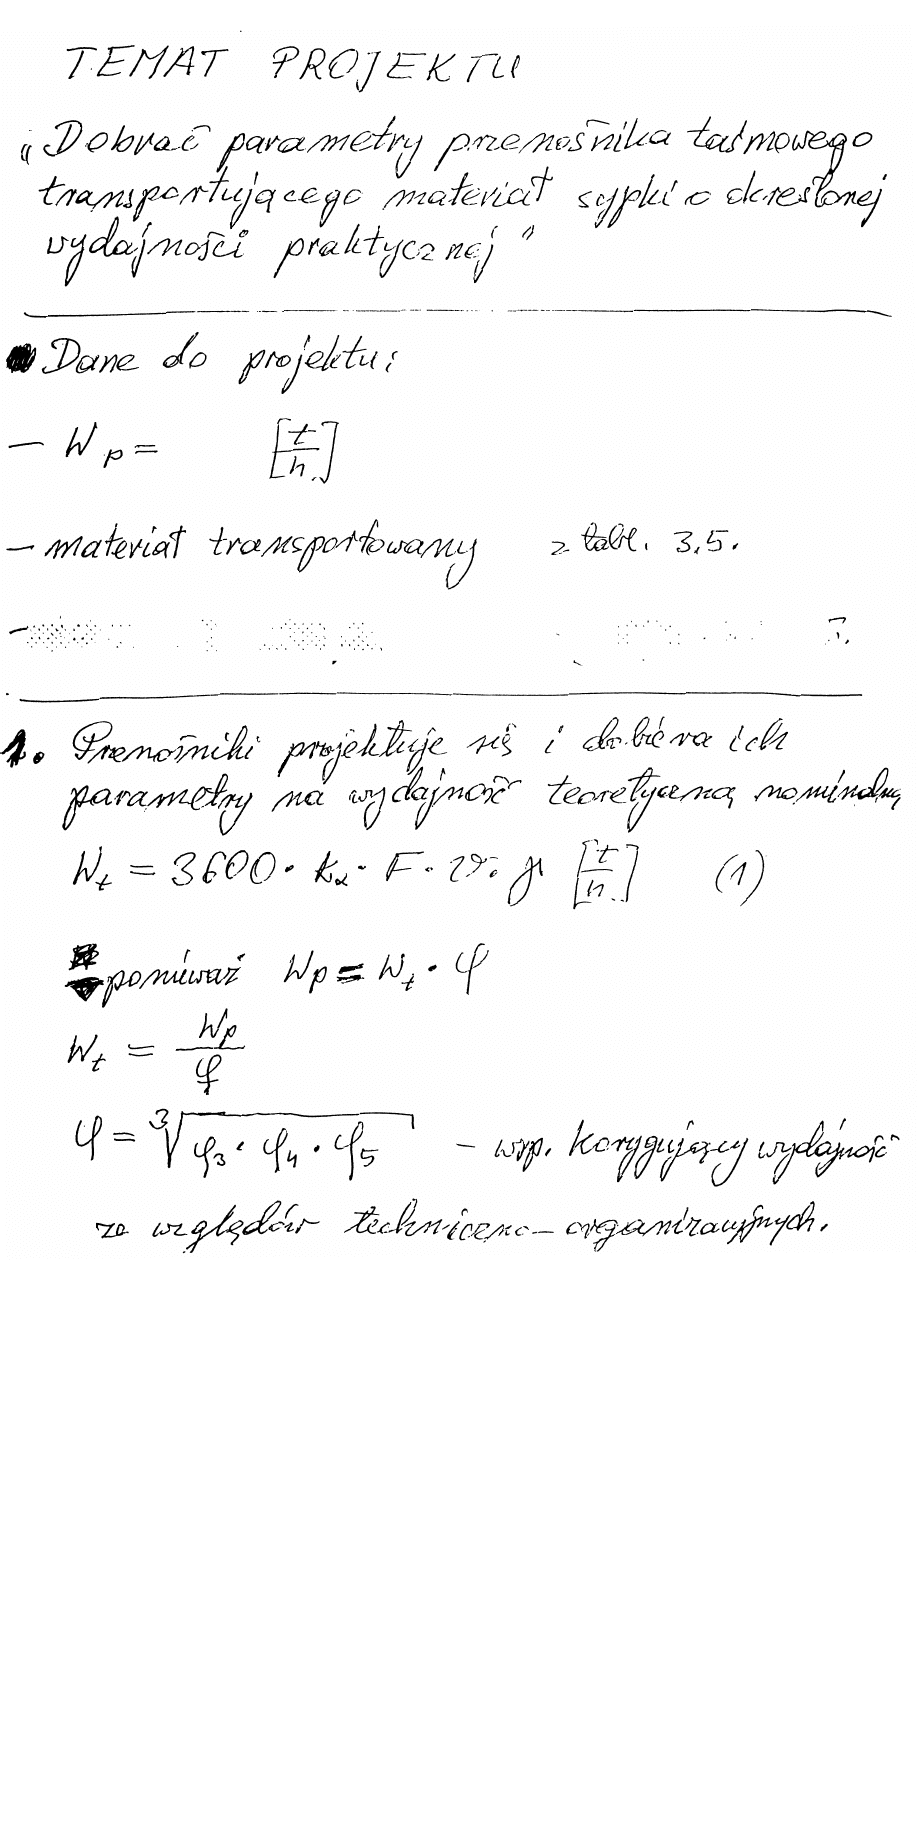 TEMAT PROJEKTU
„Dobrać parametry przenośnika taśmowego
transportującego materiał sypki o określonej
wydajności praktycznej"
Dane do projektu:
– Wp = [t/h]
– materiał transportowany z tabl. 3.5.
–
1. Przenośniki projektuje się i dobiera ich
parametry na wydajność teoretyczną nominalną
Wt = 3600 · kα · F · v · γ [t/h] (1)
ponieważ Wp = Wt · φ
Wt = Wp/φ
φ = ∛(φ3 · φ4 · φ5) – wsp. korygujący wydajność
ze względów techniczno–organizacyjnych.